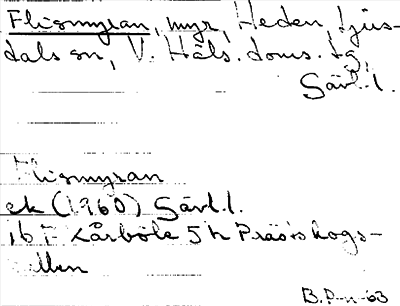 Flismyran, myr, Heden, Ljus-
dals sn, V. Häls. doms. tg,
Gävl. l.
Flismyran
ek (1960) Gävl. l.
16 F Kårböle 5 h Prästskogs-
B.P-n-63